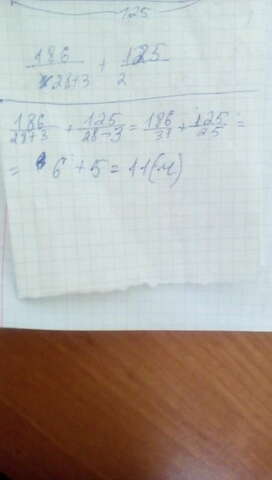 125
186/28+3 + 125/2
186/28+3 + 125/28-3 = 186/31 + 125/25 =
= 6 + 5 = 11(ч)